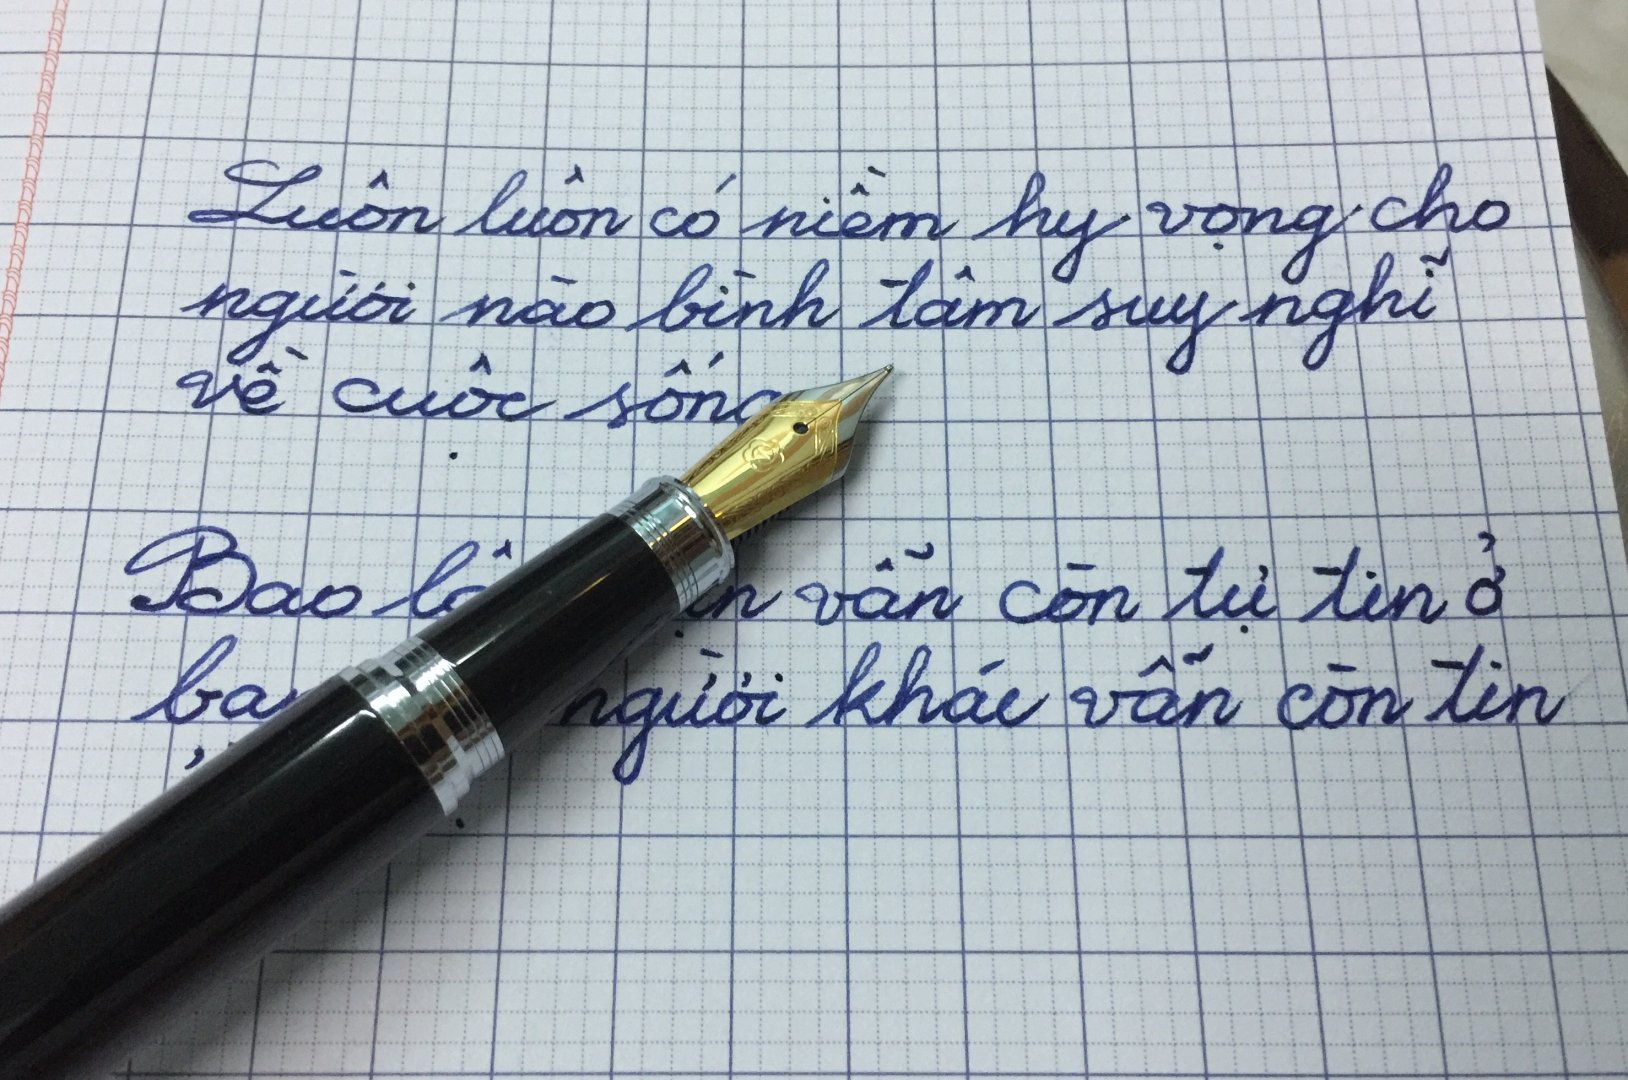 Luôn luôn có niềm hy vọng cho
người nào bình tâm suy nghĩ
về cuộc sống
Bao vẫn còn tự tin ở
người khác vẫn còn tin